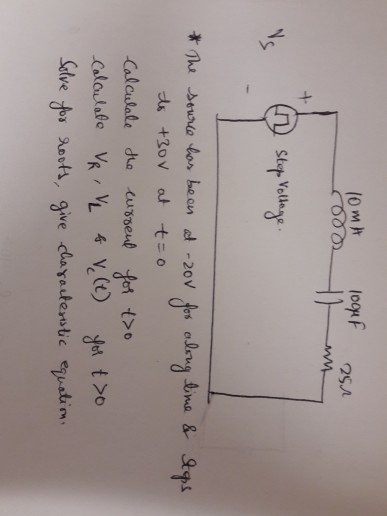 10 mH 100μF 25Ω
+
Vs
Step Voltage.
-
* The source has been at -20V for along time & steps
to +30V at t=0
Calculate the current for t>0
Calculate VR, VL & Vc(t) for t>0
Solve for roots, give characteristic equation.